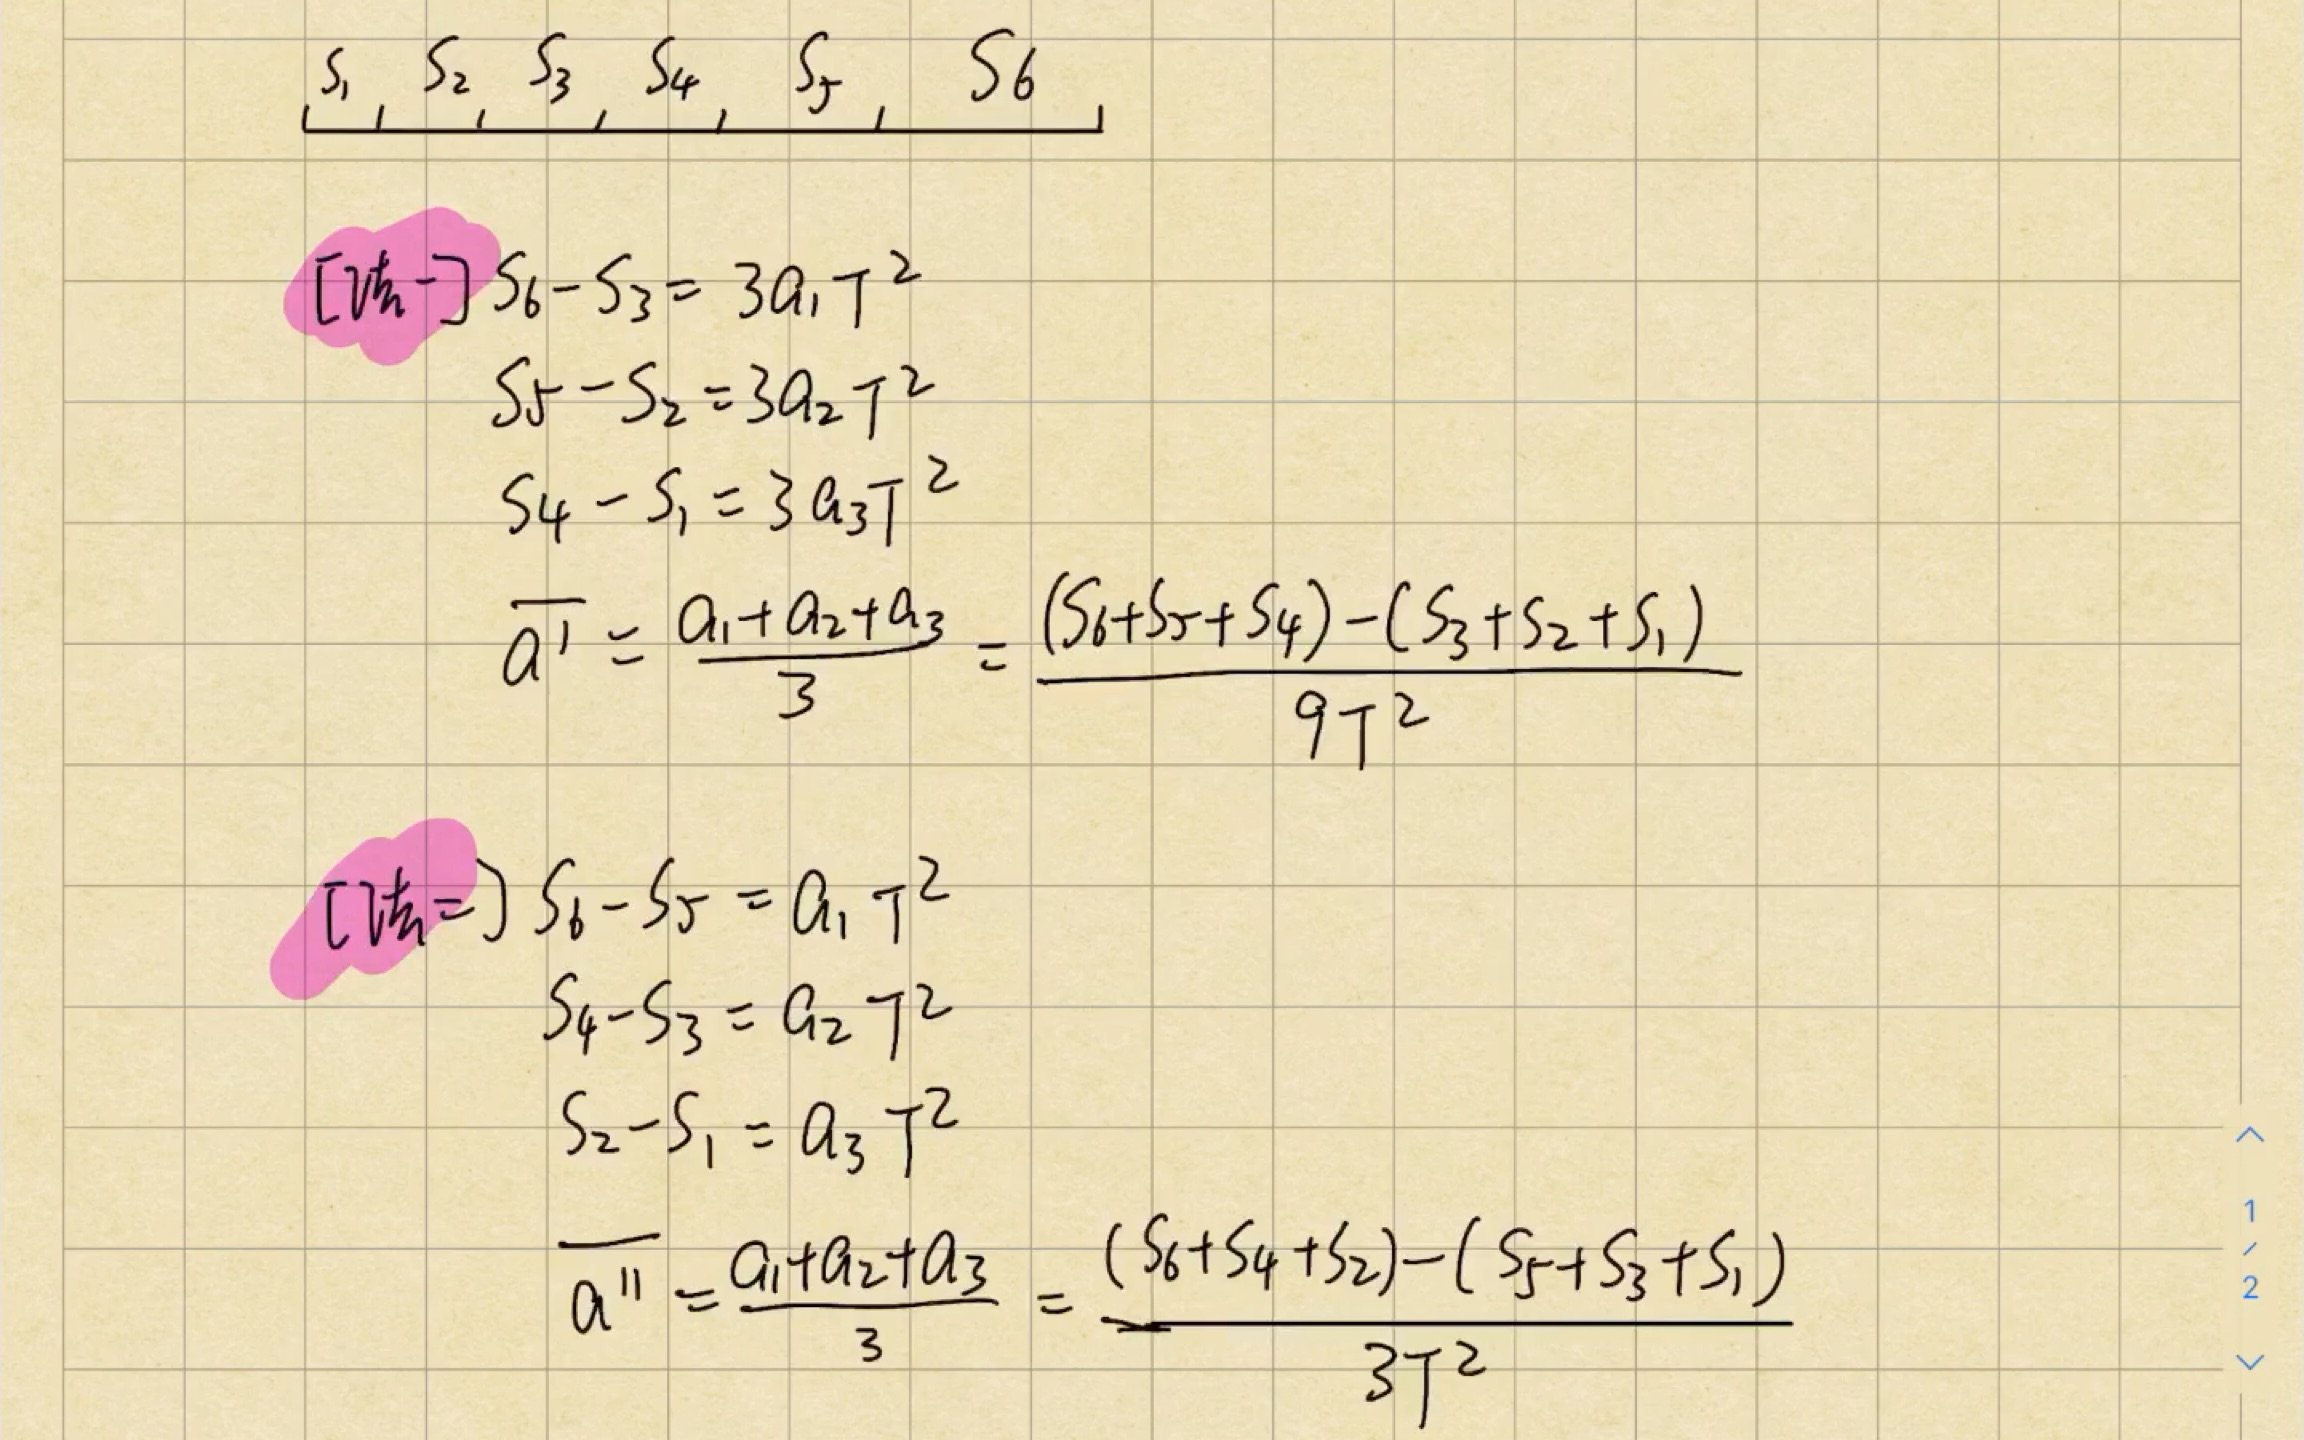 S₁ S₂ S₃ S₄ S₅ S6
[法一] S₆-S₃ = 3a₁T²
S₅-S₂=3a₂T²
S₄-S₁=3a₃T²
a̅'̅ = (a₁+a₂+a₃)/3 = ((S₆+S₅+S₄)-(S₃+S₂+S₁))/9T²
[法二] S₆-S₅ = a₁T²
S₄-S₃ = a₂T²
S₂-S₁ = a₃T²
a̅"̅ = (a₁+a₂+a₃)/3 = ((S₆+S₄+S₂)-(S₅+S₃+S₁))/3T²
1
/
2